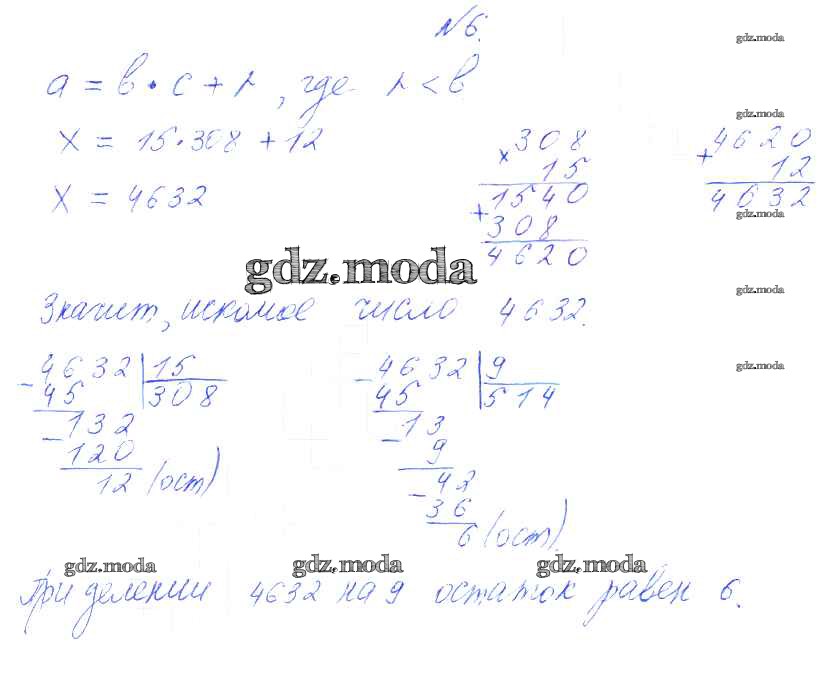 №6.
gdz.moda
a = b · c + r, где r < b
gdz.moda
x = 15·308 + 12
x = 4632
× 308
15
1540
+ 308
4620
+ 4620
12
4632
gdz.moda
gdz.moda
gdz.moda
Значит, искомое число 4632.
- 4632 | 15
45 | 308
- 132
120
12 (ост)
- 4632 | 9
45 | 514
- 13
9
- 42
36
6 (ост).
gdz.moda
gdz.moda gdz.moda gdz.moda
При делении 4632 на 9 остаток равен 6.